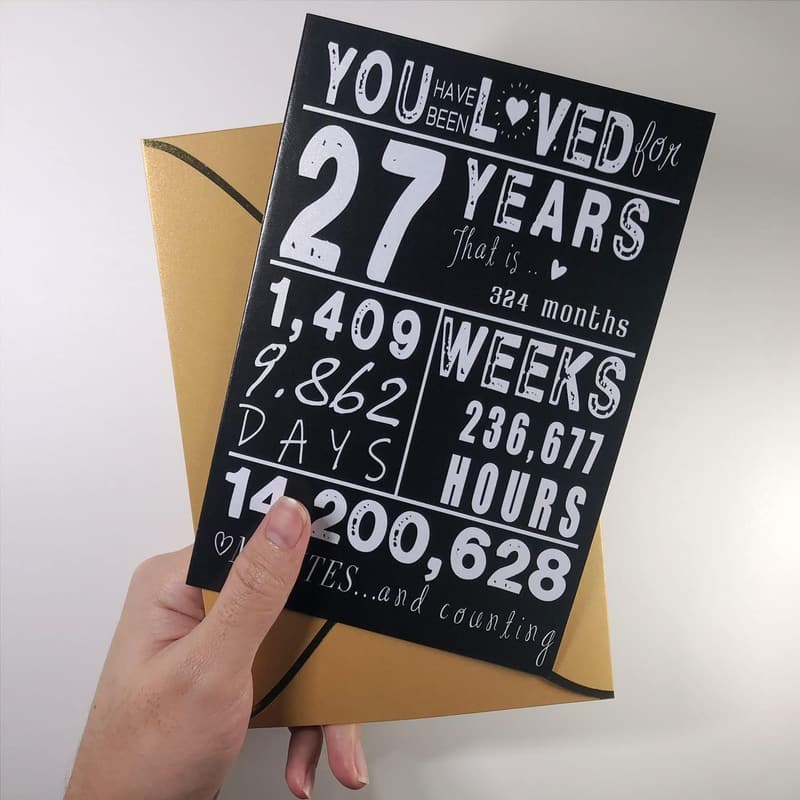 YOU HAVE BEEN LOVED for
27 YEARS
That is..
324 months
1,409 WEEKS
9.862 DAYS
236,677 HOURS
14,200,628
...and counting